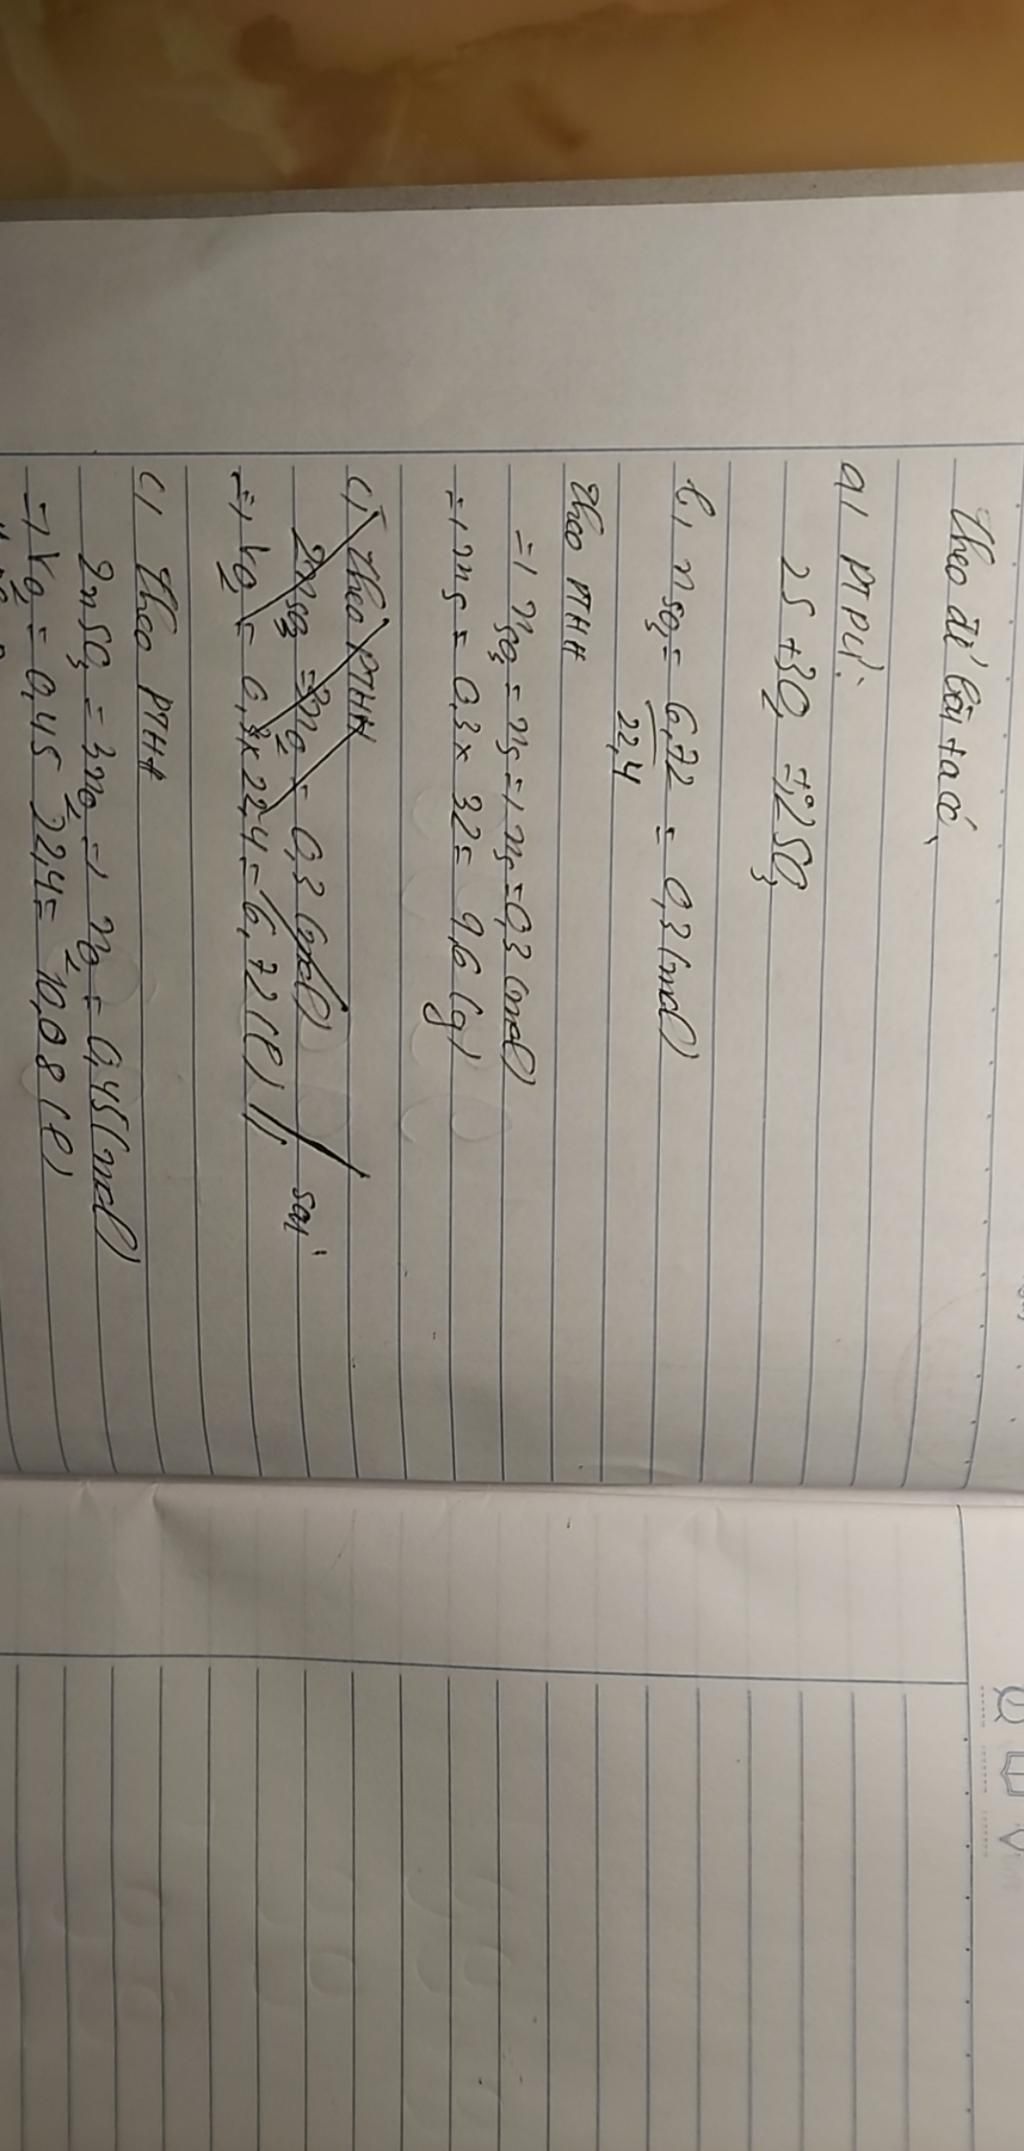 Theo đề bài ta có
a, PTPƯ:
2S + 3O2 → 2SO3
b, nSO3 = 6,72 / 22,4 = 0,3 (mol)
Theo PTHH
=> nSO3 = nS => nS = 0,3 (mol)
=> mS = 0,3 x 32 = 9,6 (g)
c, Theo PTHH
2nSO3 = 3nO2 = 0,3 (mol)
=> VO2 = 0,3 x 22,4 = 6,72 (l) // sai
c, Theo PTHH
2nSO3 = 3nO2 => nO2 = 0,45 (mol)
→ VO2 = 0,45 22,4 = 10,08 (l)